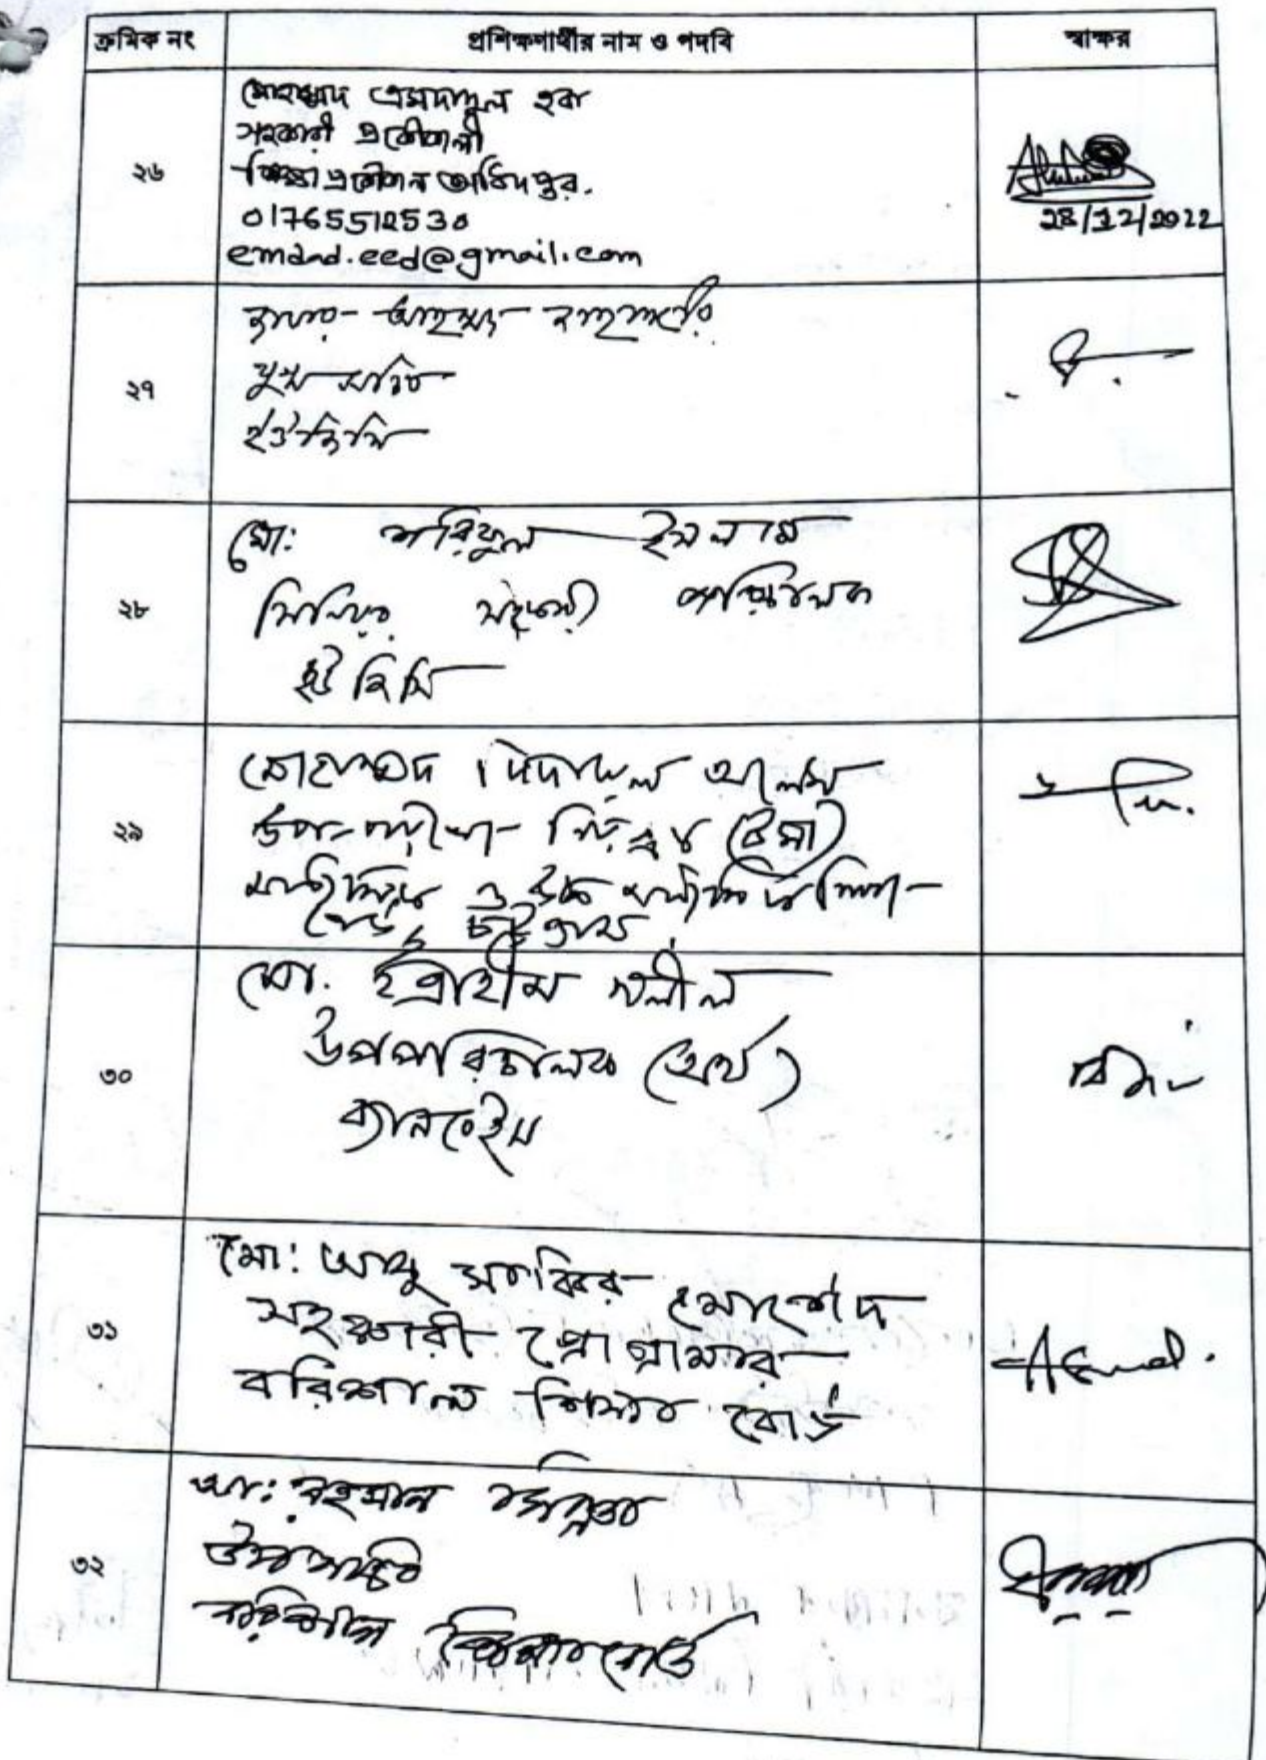 ক্রমিক নং প্রশিক্ষণার্থীর নাম ও পদবি স্বাক্ষর
২৬
মোহাম্মদ এমদাদুল হক
সহকারী প্রকৌশলী
শিক্ষা প্রকৌশল অধিদপ্তর.
01765512530
emdad.eed@gmail.com
28/12/2022
২৭
যুগ্ম সচিব
ইউজিসি
২৮
মো: শরিফুল ইসলাম
সিনিয়র সহকারী পরিচালক
ইউজিসি
২৯
মোহাম্মদ দিদারুল আলম
উপ-পরীক্ষা নিয়ন্ত্রক
মাধ্যমিক ও উচ্চ মাধ্যমিক শিক্ষা
বোর্ড, চট্টগ্রাম
৩০
মো. ইব্রাহীম খলীল
উপপরিচালক (অর্থ)
ব্যানবেইস
৩১
মো: আবু মোর্শেদ
সহকারী প্রোগ্রামার
বরিশাল শিক্ষা বোর্ড
৩২
আ: রহমান
উপসচিব
বরিশাল শিক্ষা বোর্ড